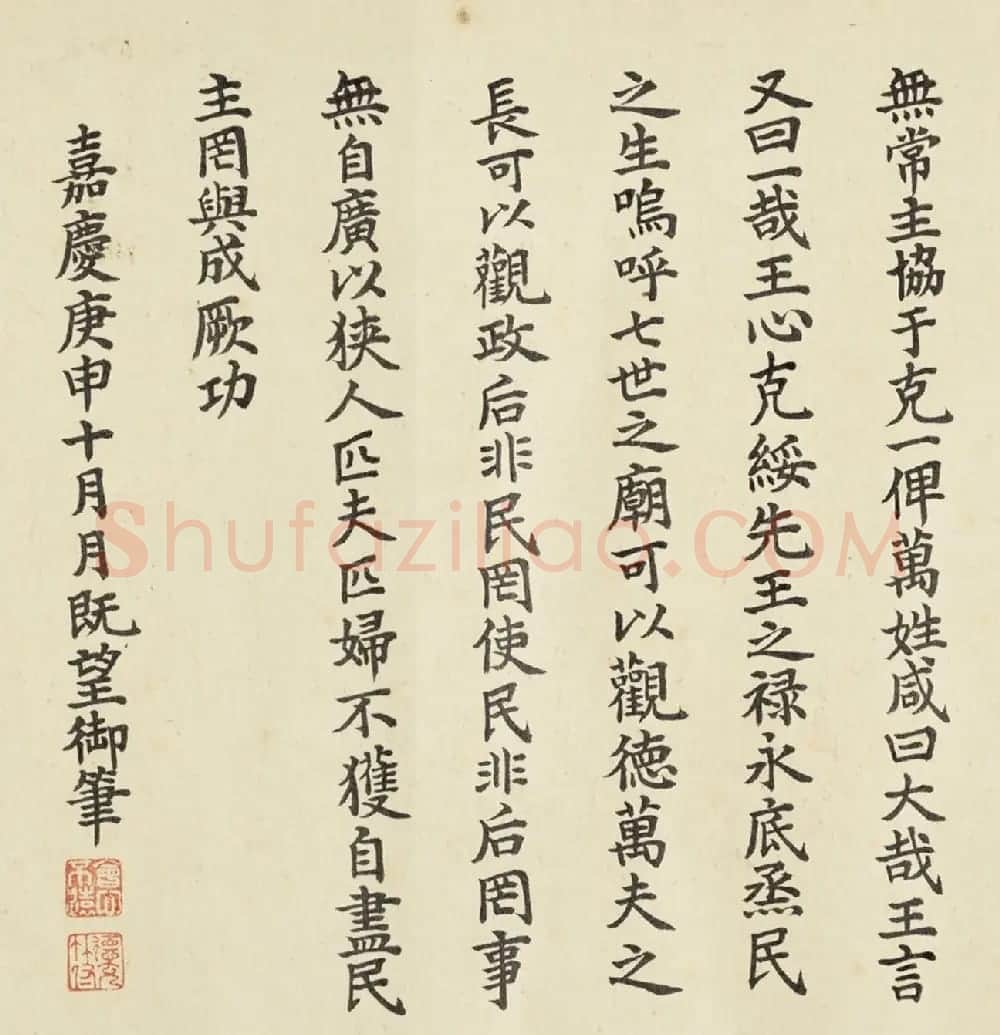 無常主協于克一俾萬姓咸曰大哉王言
又曰一哉王心克綏先王之禄永底烝民
之生嗚呼七世之廟可以觀徳萬夫之
長可以觀政后非民罔使民非后罔事
無自廣以狭人匹夫匹婦不獲自盡民
主罔與成厥功
嘉慶庚申十月月既望御筆
會心不遠
德充符
Shufaziliao.COM